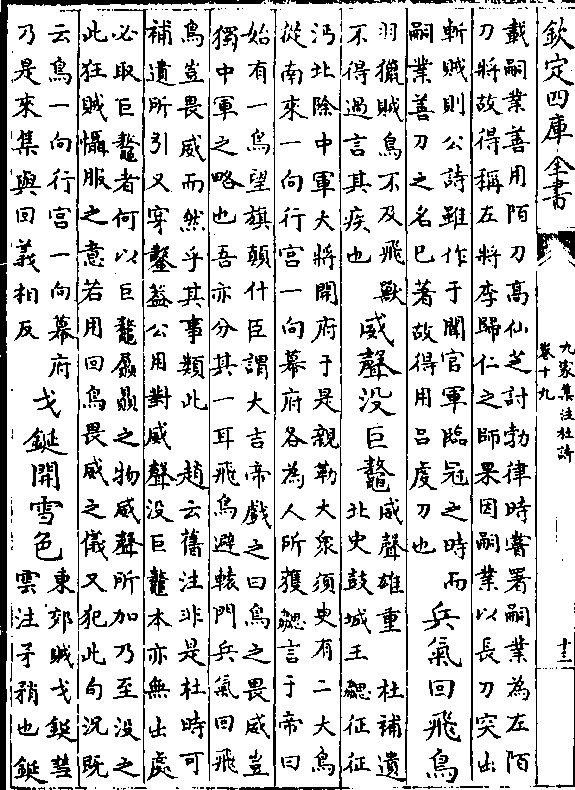 欽定四庫全書
九家集注杜詩
卷十九
十二
載嗣業善用陌刀高仙芝討勃律時嘗署嗣業為左陌
刀將故得稱左將李歸仁之師果因嗣業以長刀突出
斬賊則公詩雖作于聞官軍臨冦之時而
嗣業善刀之名已著故得用吕䖍刀也
兵氣回飛鳥
羽獵賊鳥不及飛獸
不得過言其疾也
威聲没巨鼇
威聲雄重 杜補遺
北史鼓城王勰征征
沔北除中軍大將開府于是親勒大衆須史有二大鳥
從南來一向行宫一向幕府各為人所獲勰言于帝曰
始有一鳥望旗顛什臣謂大吉帝戲之曰鳥之畏威豈
獨中軍之略也吾亦分其一耳飛鳥避轅門兵氣回飛
鳥豈畏威而然乎其事類此 趙云舊注非是杜時可
補遺所引又穿鑿葢公用對威聲没巨鼇本亦無出處
必取巨鼇者何以巨鼇贔屭之物威聲所加乃至没之
此狂賊懾服之意若用回鳥畏威之儀又犯此句況既
云鳥一向行宫一向幕府
乃是來集與回義相反
戈鋋開雪色
東郊賊戈鋋彗
雲注矛矟也鋋